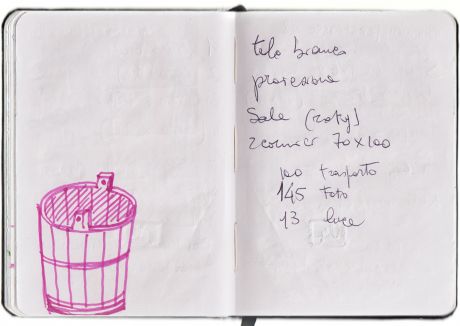 telo bianco
proiezione
Sale (Katy)
2 cornici 70x100
100 trasporto
145 Foto
13 luce